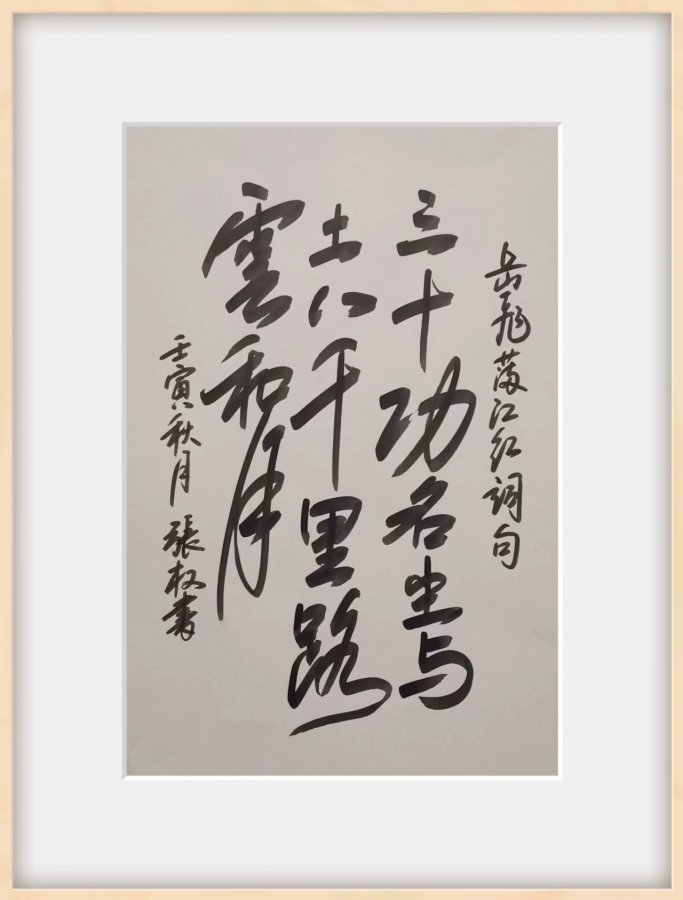 岳飛满江红詞句
三十功名尘与
土八千里路
雲和月
壬寅秋月 張权書